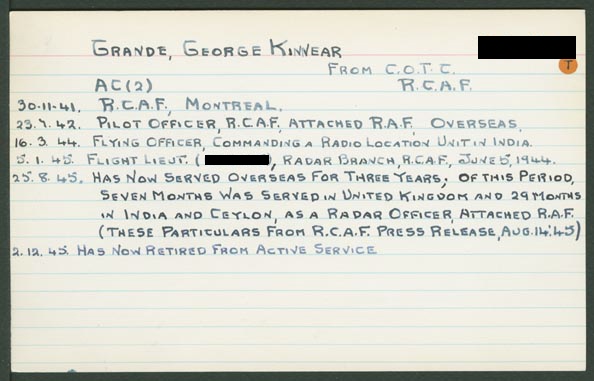 GRANDE, GEORGE KINNEAR
FROM C.O.T.C.
T
AC(2) R.C.A.F.
30-11-41. R.C.A.F., MONTREAL.
23.7.42. PILOT OFFICER, R.C.A.F. ATTACHED R.A.F. OVERSEAS.
16.3.44. FLYING OFFICER, COMMANDING A RADIO LOCATION UNIT IN INDIA.
5.1.45. FLIGHT LIEUT. ( ), RADAR BRANCH, R.C.A.F., JUNE 5, 1944.
25.8.45. HAS NOW SERVED OVERSEAS FOR THREE YEARS; OF THIS PERIOD,
SEVEN MONTHS WAS SERVED IN UNITED KINGDOM AND 29 MONTHS
IN INDIA AND CEYLON, AS A RADAR OFFICER, ATTACHED R.A.F.
(THESE PARTICULARS FROM R.C.A.F. PRESS RELEASE, AUG. 14.'45)
2.12.45. HAS NOW RETIRED FROM ACTIVE SERVICE